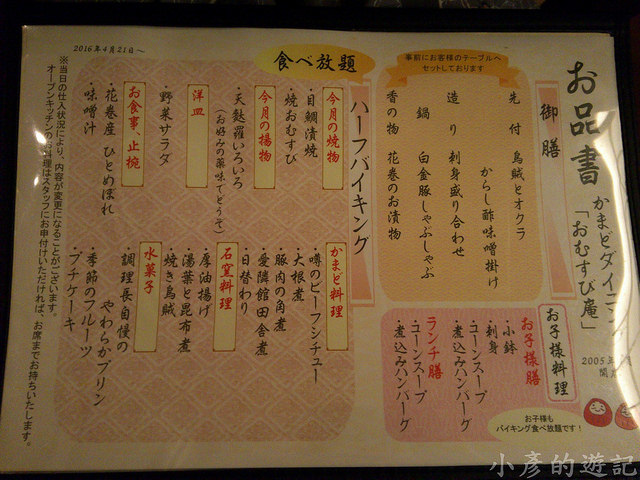 お品書
かまどダイニン
「おむすび庵」
2005年
御膳
事前にお客様のテーブルへ
セットしております
先付 烏賊とオクラ
からし酢味噌掛け
造り 刺身盛り合わせ
鍋 白金豚しゃぶしゃぶ
香の物 花巻のお漬物
お子様料理
お子様膳
・小鉢
・刺身
・コーンスープ
・煮込みハンバーグ
ランチ膳
・コーンスープ
・煮込みハンバーグ
お子様も
バイキング食べ放題です!
ハーフバイキング
食べ放題
今月の焼物
・目鯛漬焼
・焼おむすび
今月の揚物
・天麩羅いろいろ
(お好みの薬味でどうぞ)
洋皿
・野菜サラダ
お食事、止椀
・花巻産 ひとめぼれ
・味噌汁
かまど料理
・噂のビーフシチュー
・大根煮
・豚肉の角煮
・愛隣館田舎煮
・日替わり
石窯料理
・厚油揚げ
・湯葉と昆布煮
・焼き烏賊
水菓子
・調理長自慢の
やわらかプリン
・季節のフルーツ
・プチケーキ
2016年4月21日~
※当日の仕入状況により、内容が変更になることがございます。
オープンキッチンのお料理はスタッフにお申付けいただければ、お席までお持ちいたします。
小彥的遊記